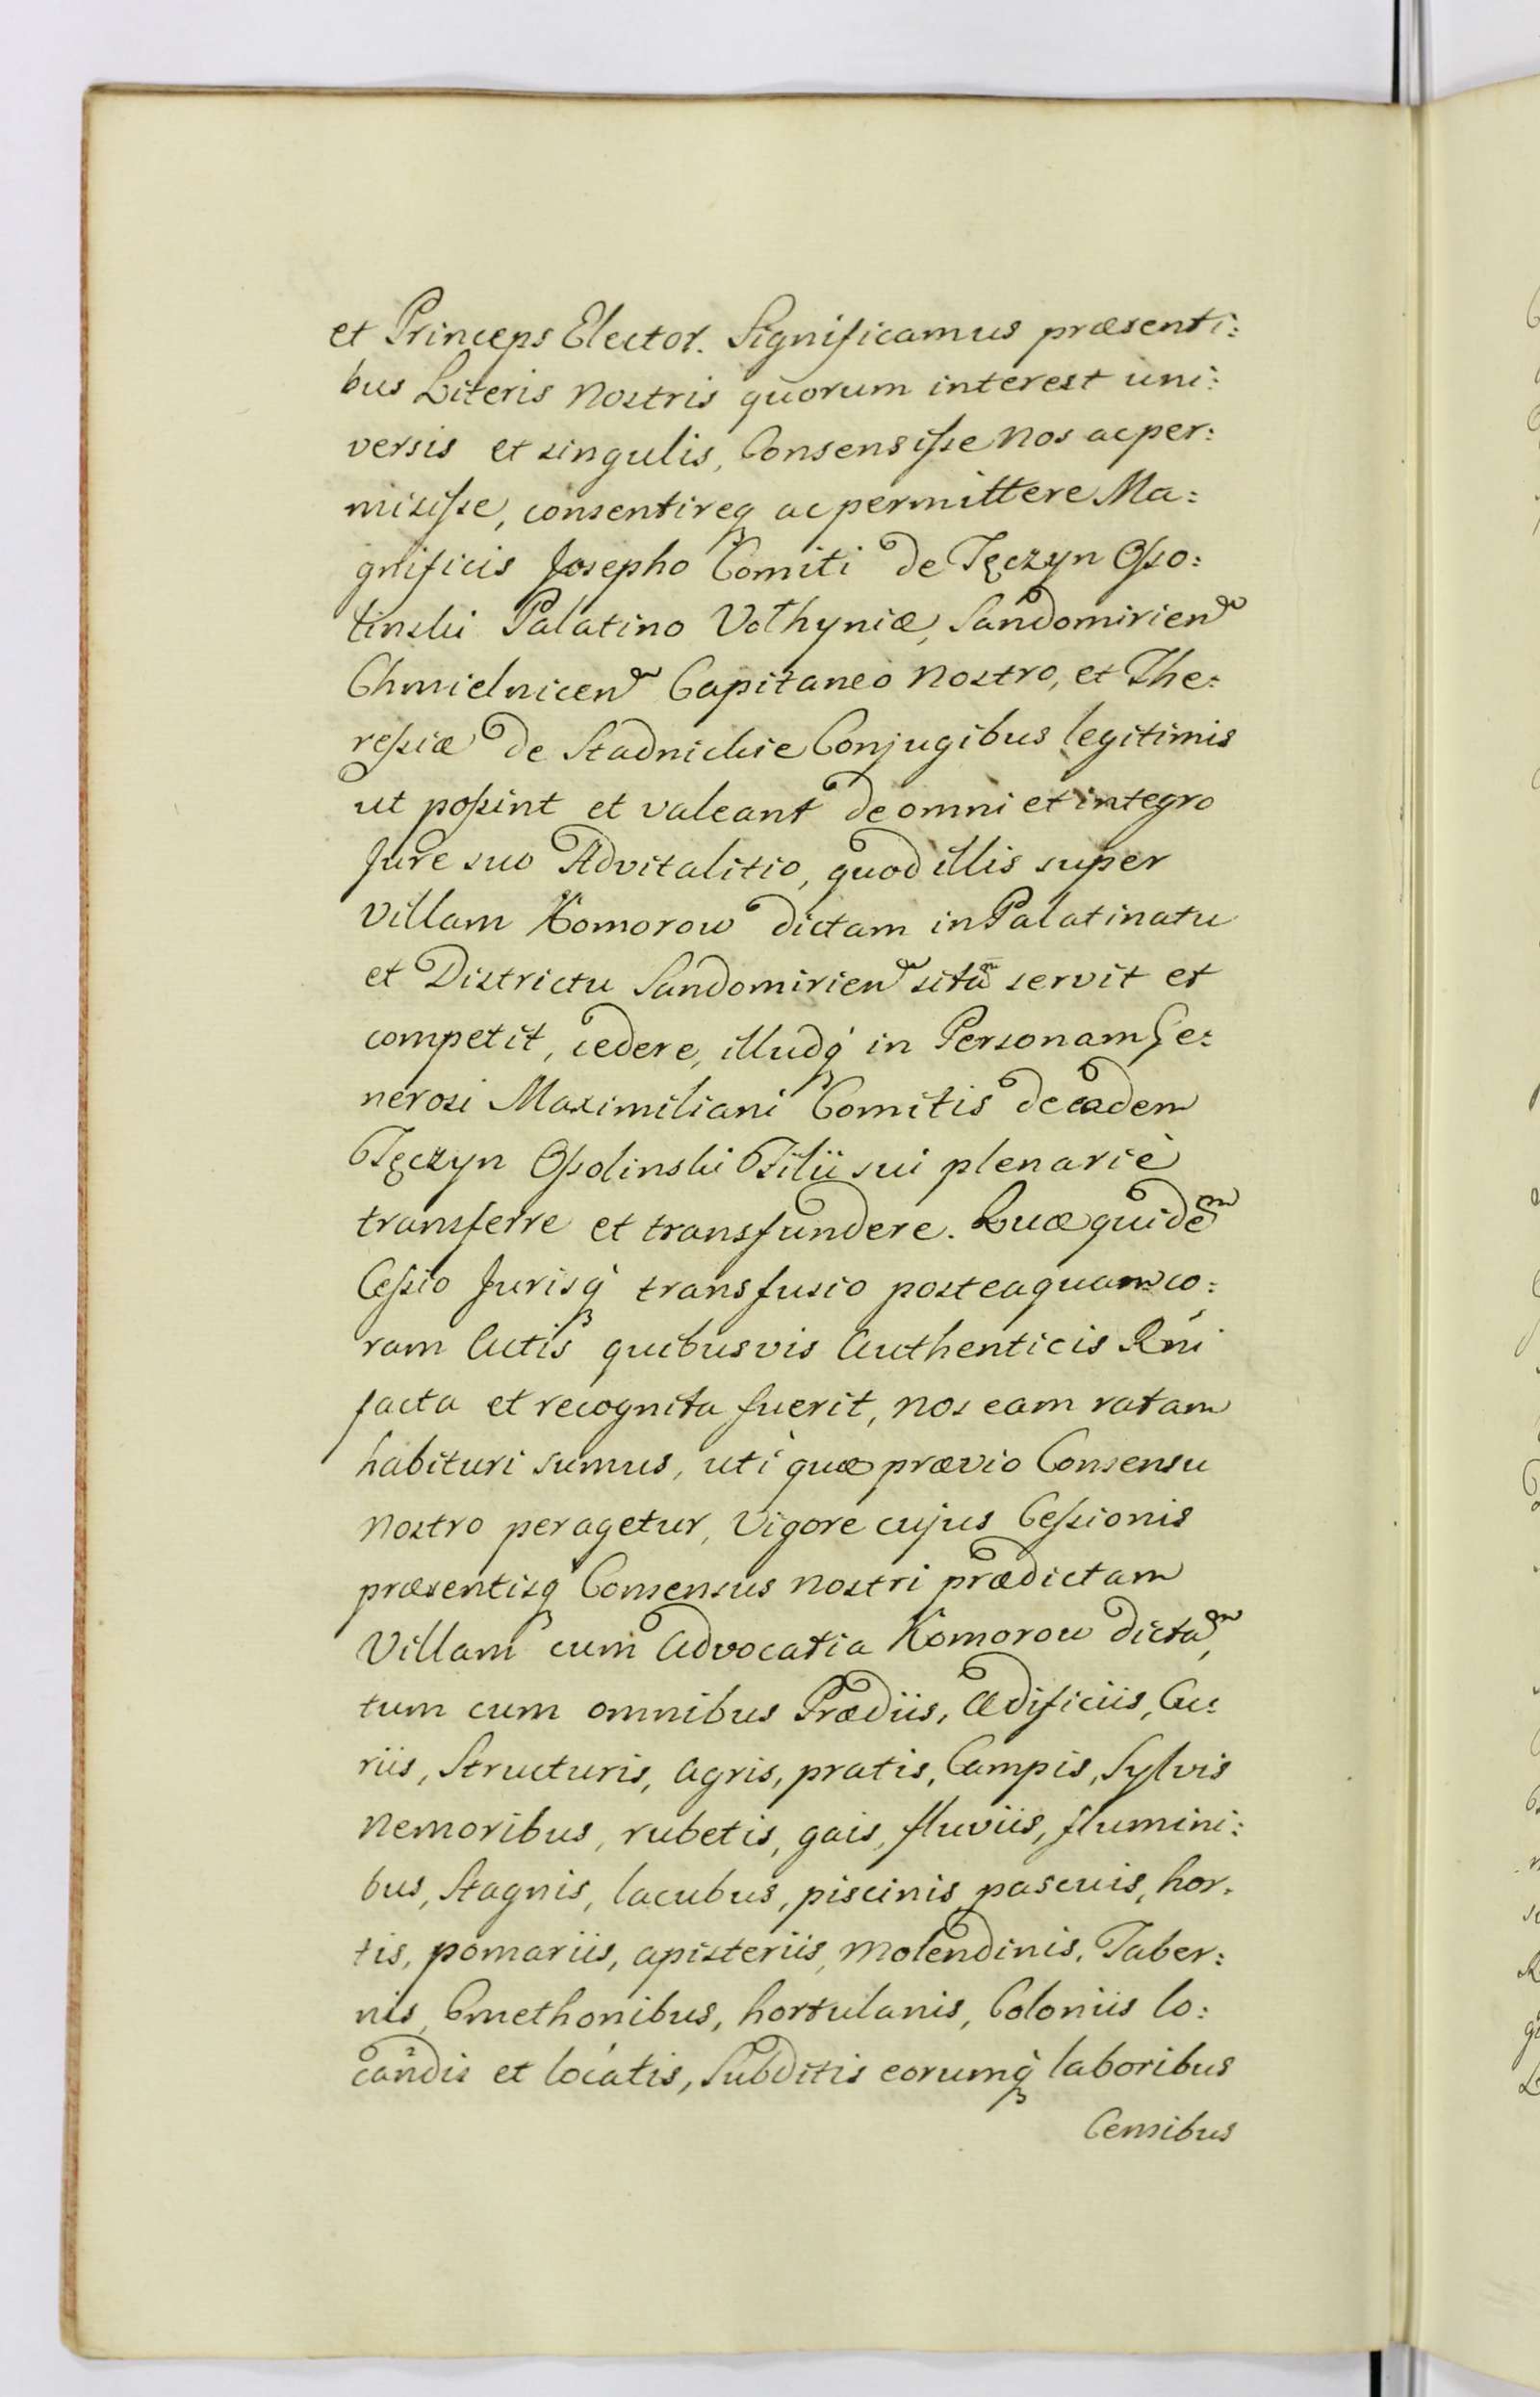 et Princeps Elector. Significamus præsenti:
bus Literis Nostris quorum interest uni:
versis et singulis, Consensisse Nos ac per:
misisse, consentireq; ac permittere Ma:
gnificis Josepho Comiti de Tęczyn Osso:
linski Palatino Volhyniæ, Sandomirien
Chmielnicen Capitaneo Nostro, et The:
ressiæ de Stadnickie Conjugibus legitimis
ut possint et valeant de omni et integro
Jure suo Advitalitio, quod illis super
Villam Komorow dictam in Palatinatu
et Districtu Sandomirien sitam servit et
competit, cedere, illudq; in Personam Ge:
nerosi Maximiliani Comitis de eadem
Tęczyn Ossolinski Filii sui plenarie
transferre et transfundere. Quæ quidem
Cessio Jurisq; transfusio posteaquam co:
ram Actis quibusvis Authenticis Rni
facta et recognita fuerit, Nos eam ratam
habituri sumus, uti quæ prævio Consensu
Nostro peragetur, Vigore cujus Cessionis
præsentisq; Consensus Nostri prædictam
Villam cum Advocatia Komorow dictam,
tum cum omnibus Prædiis, Ædificiis, Cu:
riis, Structuris, Agris, pratis, Campis, Sylvis
Nemoribus, rubetis, gais, fluviis, flumini:
bus, Stagnis, lacubus, piscinis, pascuis, hor:
tis, pomariis, apisteriis, Molendinis, Taber:
nis, Cmethonibus, hortulanis, Coloniis lo:
candis et locatis, Subditis eorumq; laboribus
Censibus